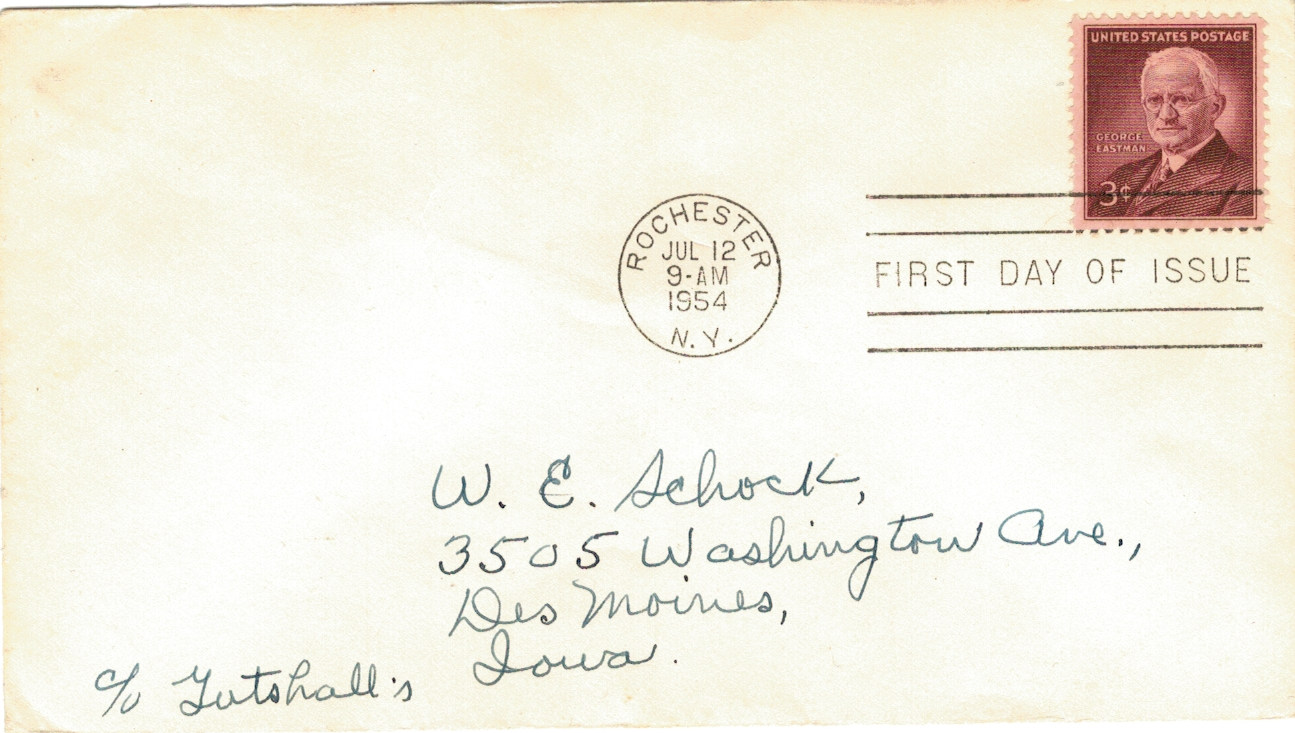 UNITED STATES POSTAGE
GEORGE
EASTMAN
3¢
ROCHESTER
JUL 12
9-AM
1954
N.Y.
FIRST DAY OF ISSUE
W. E. Schock,
3505 Washington Ave.,
Des Moines,
Iowa.
c/o Gutshall's